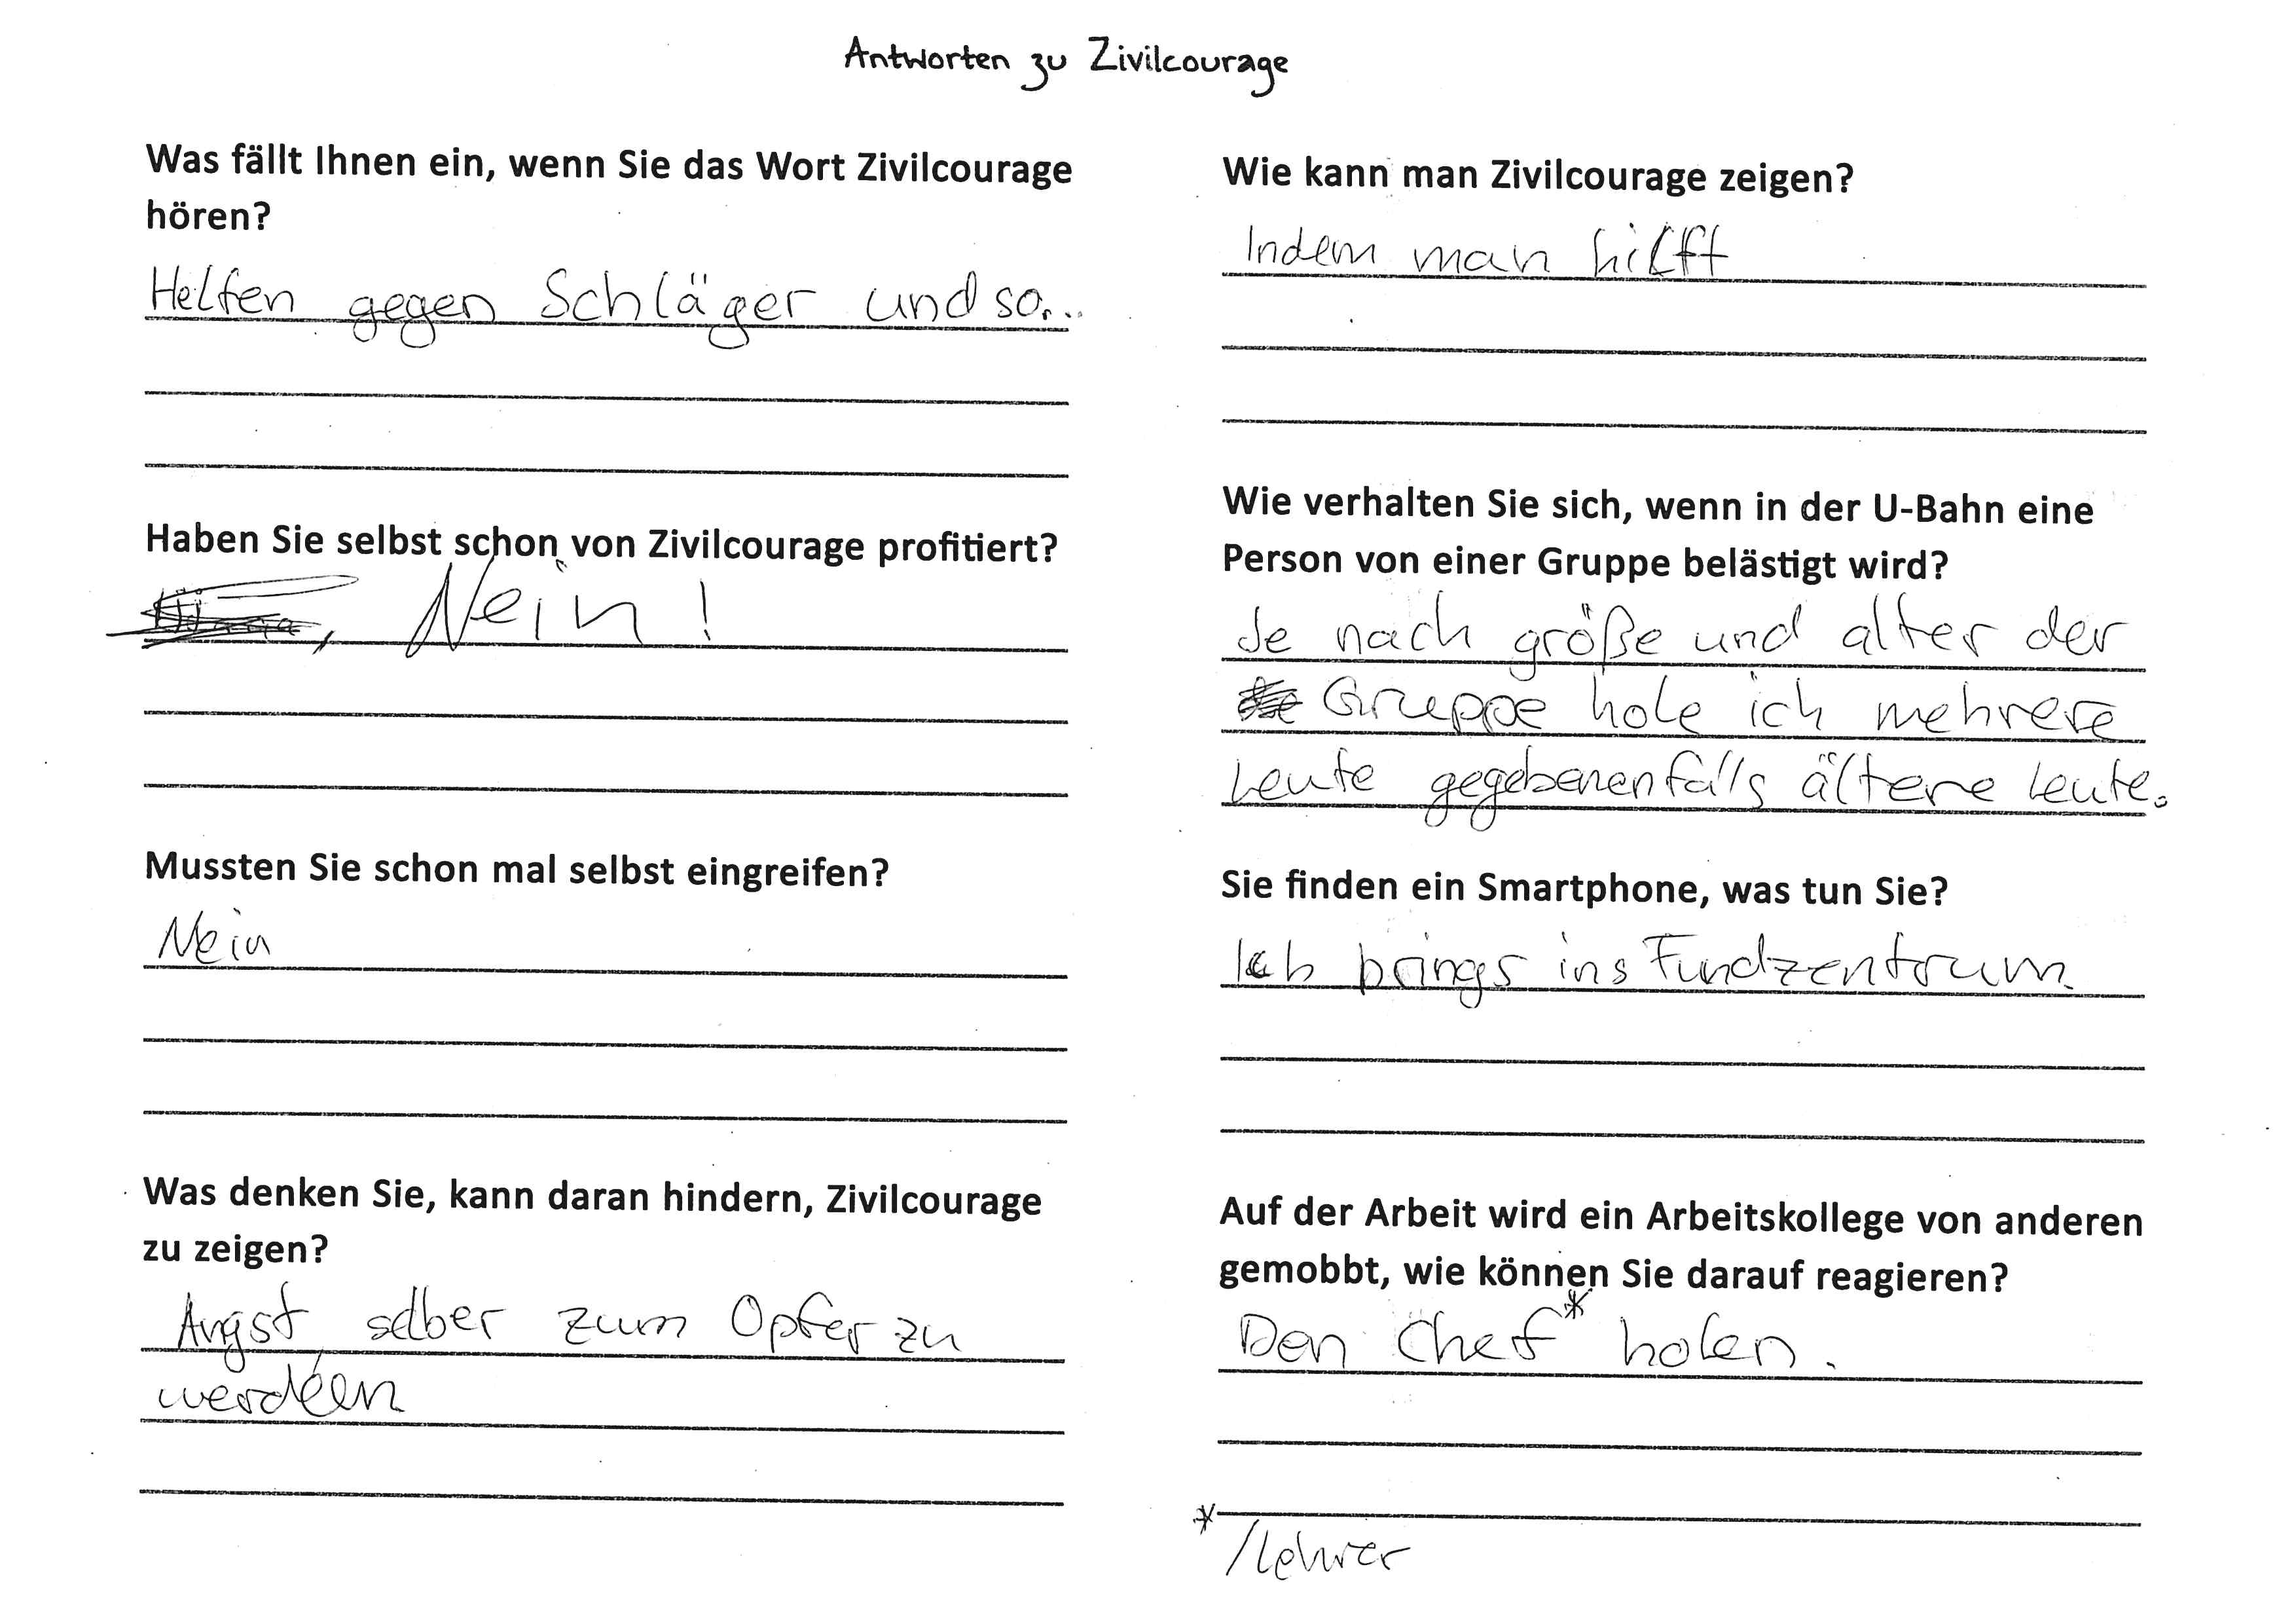 Antworten zu Zivilcourage
Was fällt Ihnen ein, wenn Sie das Wort Zivilcourage
hören?
Helfen gegen Schläger und so...
Haben Sie selbst schon von Zivilcourage profitiert?
Nein!
Mussten Sie schon mal selbst eingreifen?
Nein
Was denken Sie, kann daran hindern, Zivilcourage
zu zeigen?
Angst selber zum Opfer zu
werden
Wie kann man Zivilcourage zeigen?
Indem man hilft
Wie verhalten Sie sich, wenn in der U-Bahn eine
Person von einer Gruppe belästigt wird?
Je nach größe und alter der
Gruppe hole ich mehrere
Leute gegebenenfalls ältere Leute.
Sie finden ein Smartphone, was tun Sie?
Ich brings ins Fundzentrum.
Auf der Arbeit wird ein Arbeitskollege von anderen
gemobbt, wie können Sie darauf reagieren?
Den Chef* holen.
*
/Lehrer